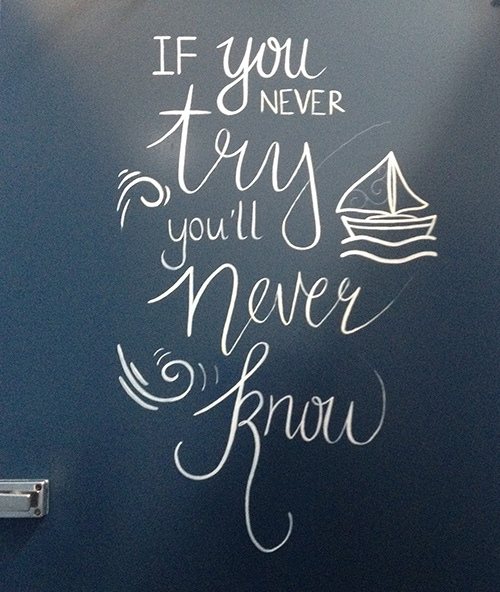 IF you
NEVER
try
you'll
never
know